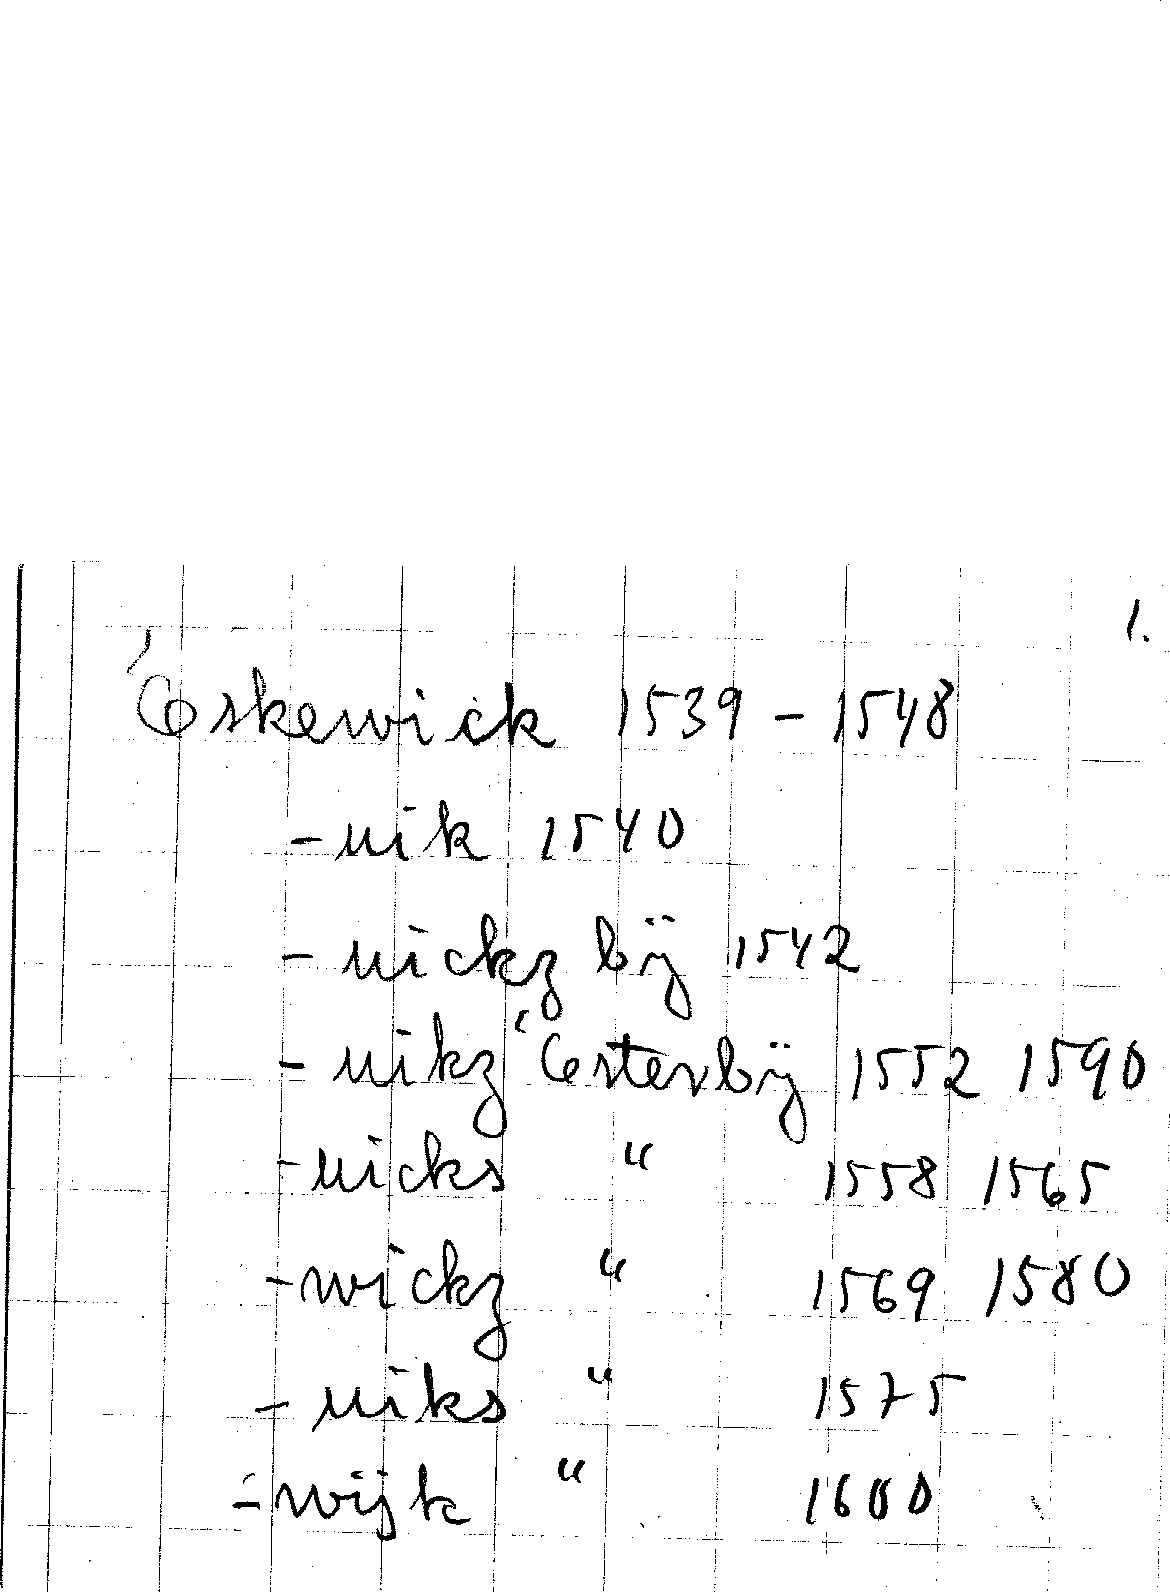 1.
Eskewick 1539 – 1548
– uik 1540
– uickz bÿ 1542
– uikz Esterbÿ 1552 1590
– uicks " 1558 1565
– wickz " 1569 1580
– uiks " 1575
– wijk " 1600